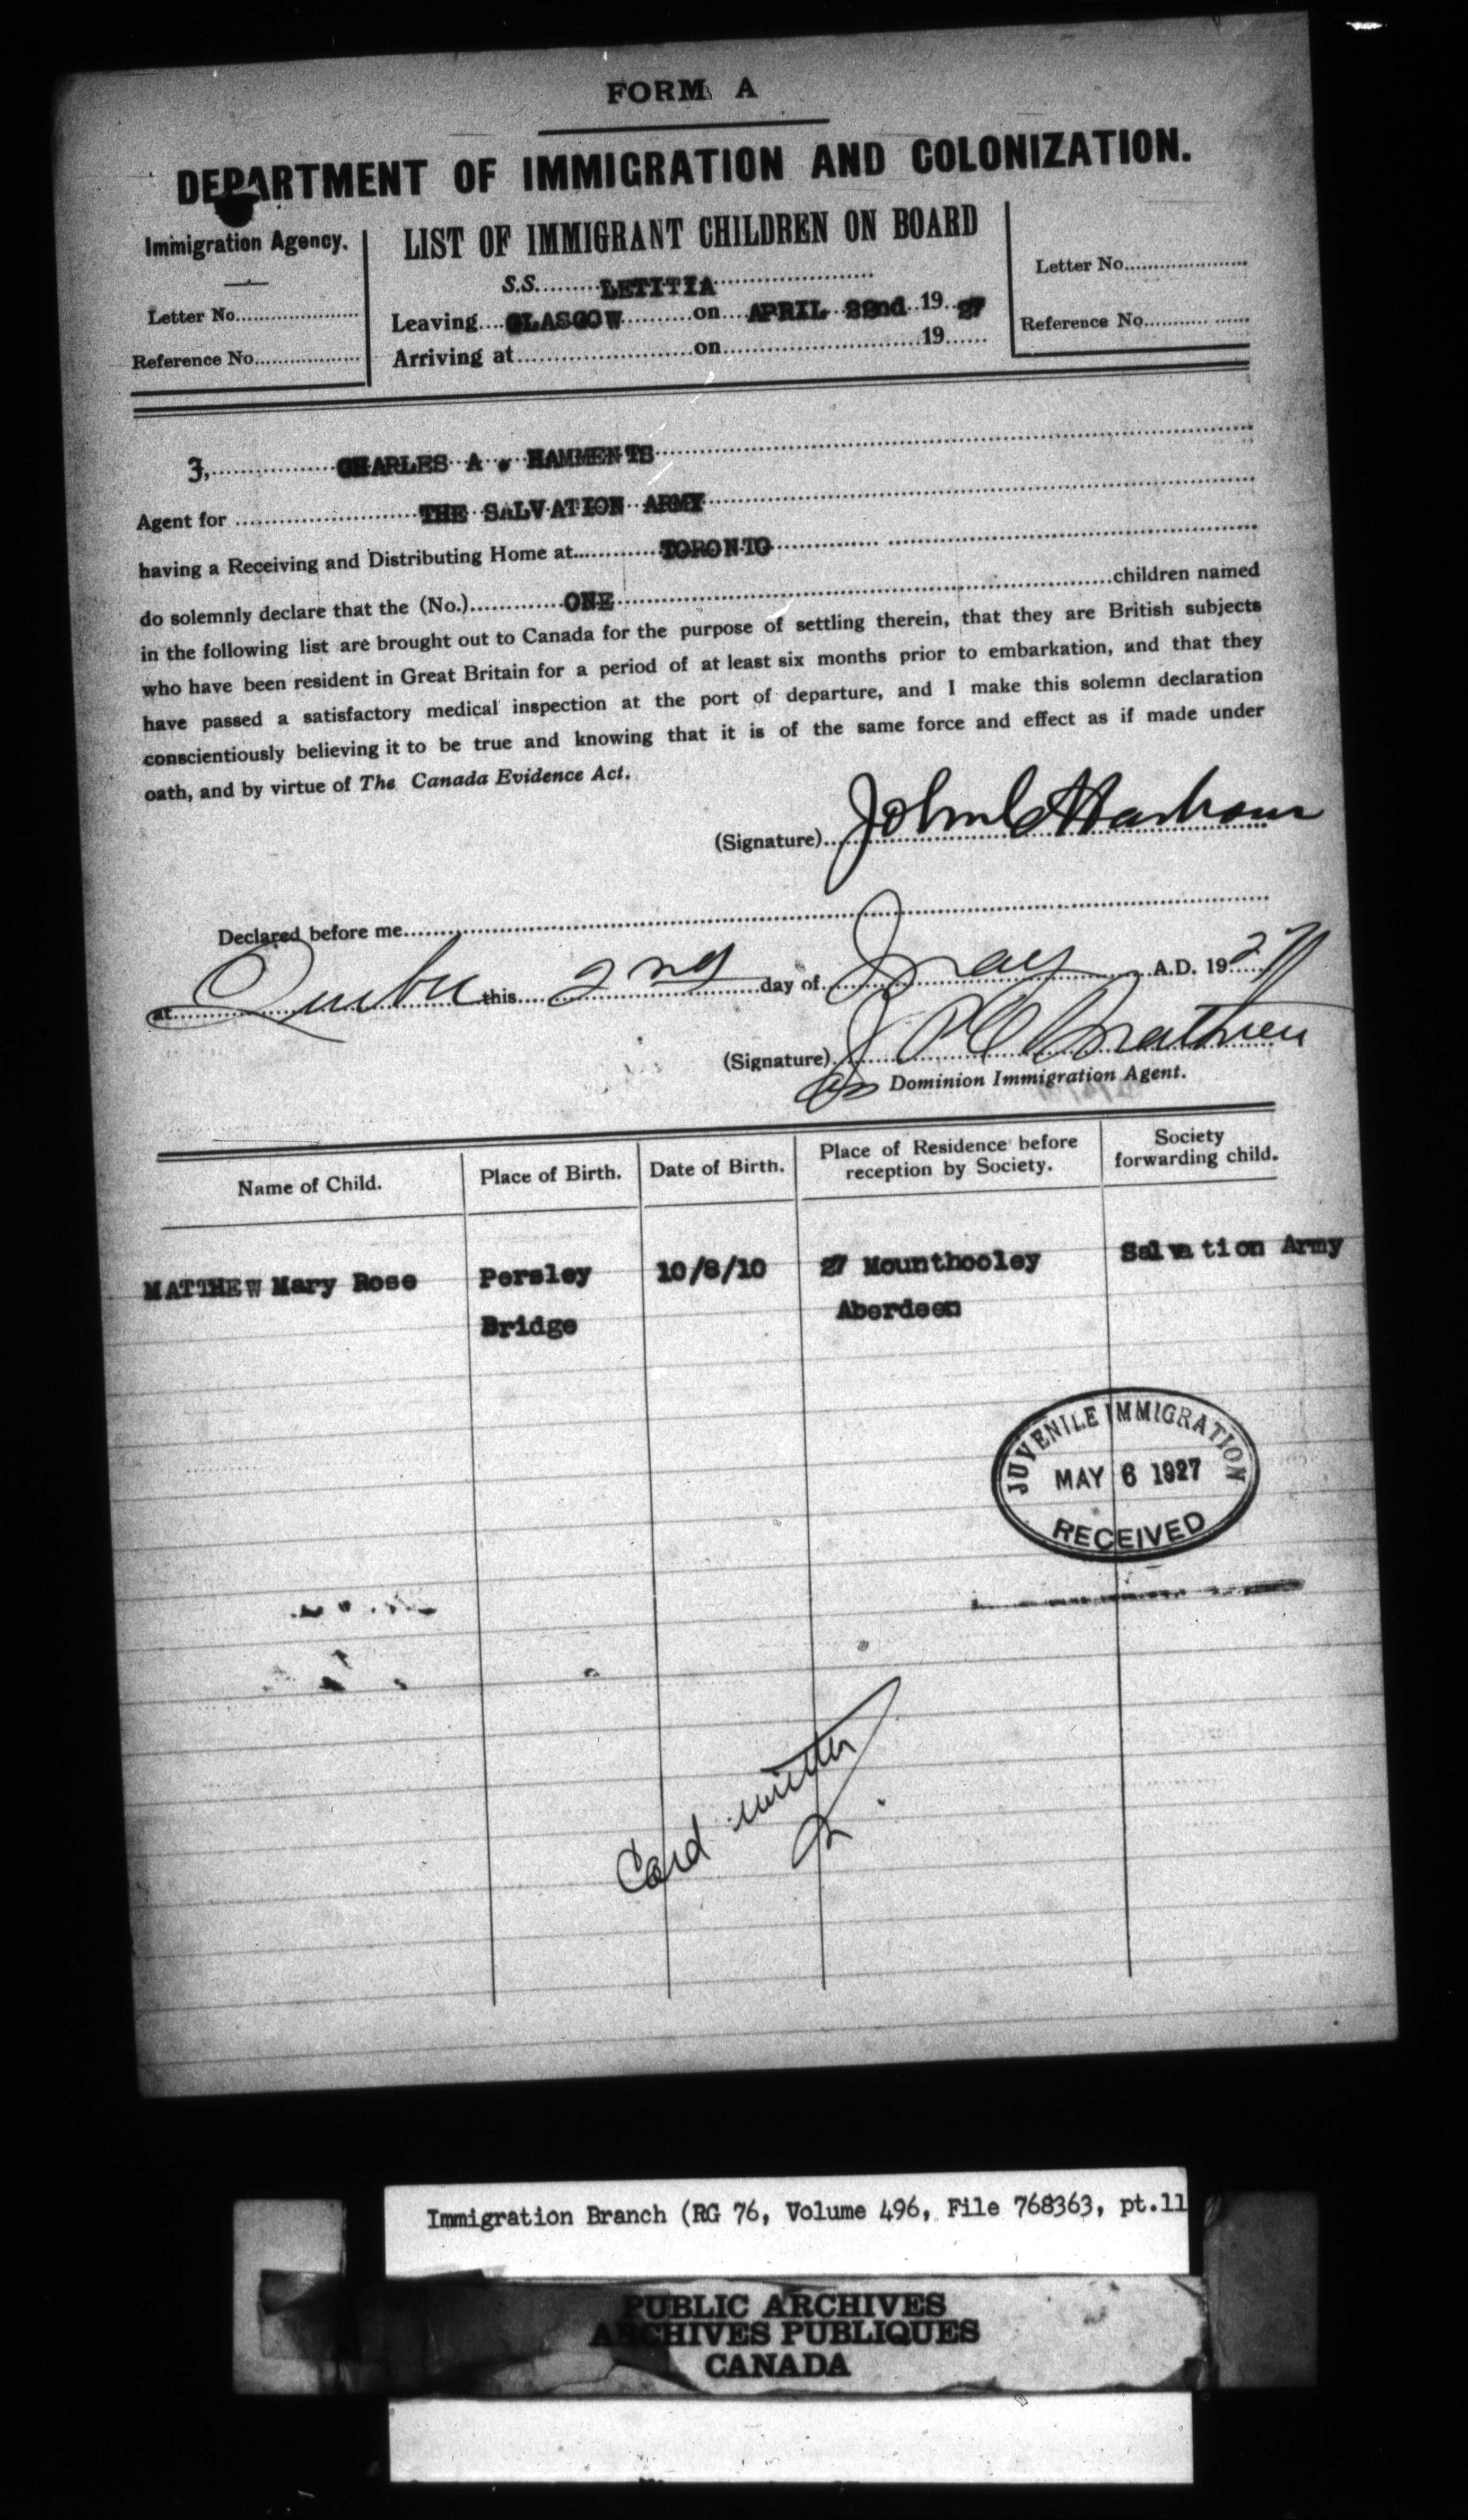 FORM A
DEPARTMENT OF IMMIGRATION AND COLONIZATION.
Immigration Agency.
Letter No.
Reference No.
LIST OF IMMIGRANT CHILDREN ON BOARD
S.S. LETITIA
Leaving GLASGOW on APRIL 22nd 19 27
Arriving at on 19
Letter No.
Reference No.
I, CHARLES A. HAMMENTS
Agent for THE SALVATION ARMY
having a Receiving and Distributing Home at TORONTO
do solemnly declare that the (No.) ONE children named
in the following list are brought out to Canada for the purpose of settling therein, that they are British subjects
who have been resident in Great Britain for a period of at least six months prior to embarkation, and that they
have passed a satisfactory medical inspection at the port of departure, and I make this solemn declaration
conscientiously believing it to be true and knowing that it is of the same force and effect as if made under
oath, and by virtue of The Canada Evidence Act.
(Signature) John
Declared before me
at Quebec this 2nd day of May A.D. 1927
(Signature)
Dominion Immigration Agent.
Name of Child. Place of Birth. Date of Birth. Place of Residence before reception by Society. Society forwarding child.
MATTHEW Mary Rose Persley Bridge 10/8/10 27 Mounthooley Aberdeen Salvation Army
JUVENILE IMMIGRATION
MAY 6 1927
RECEIVED
Card written
Immigration Branch (RG 76, Volume 496, File 768363, pt.11
PUBLIC ARCHIVES
ARCHIVES PUBLIQUES
CANADA